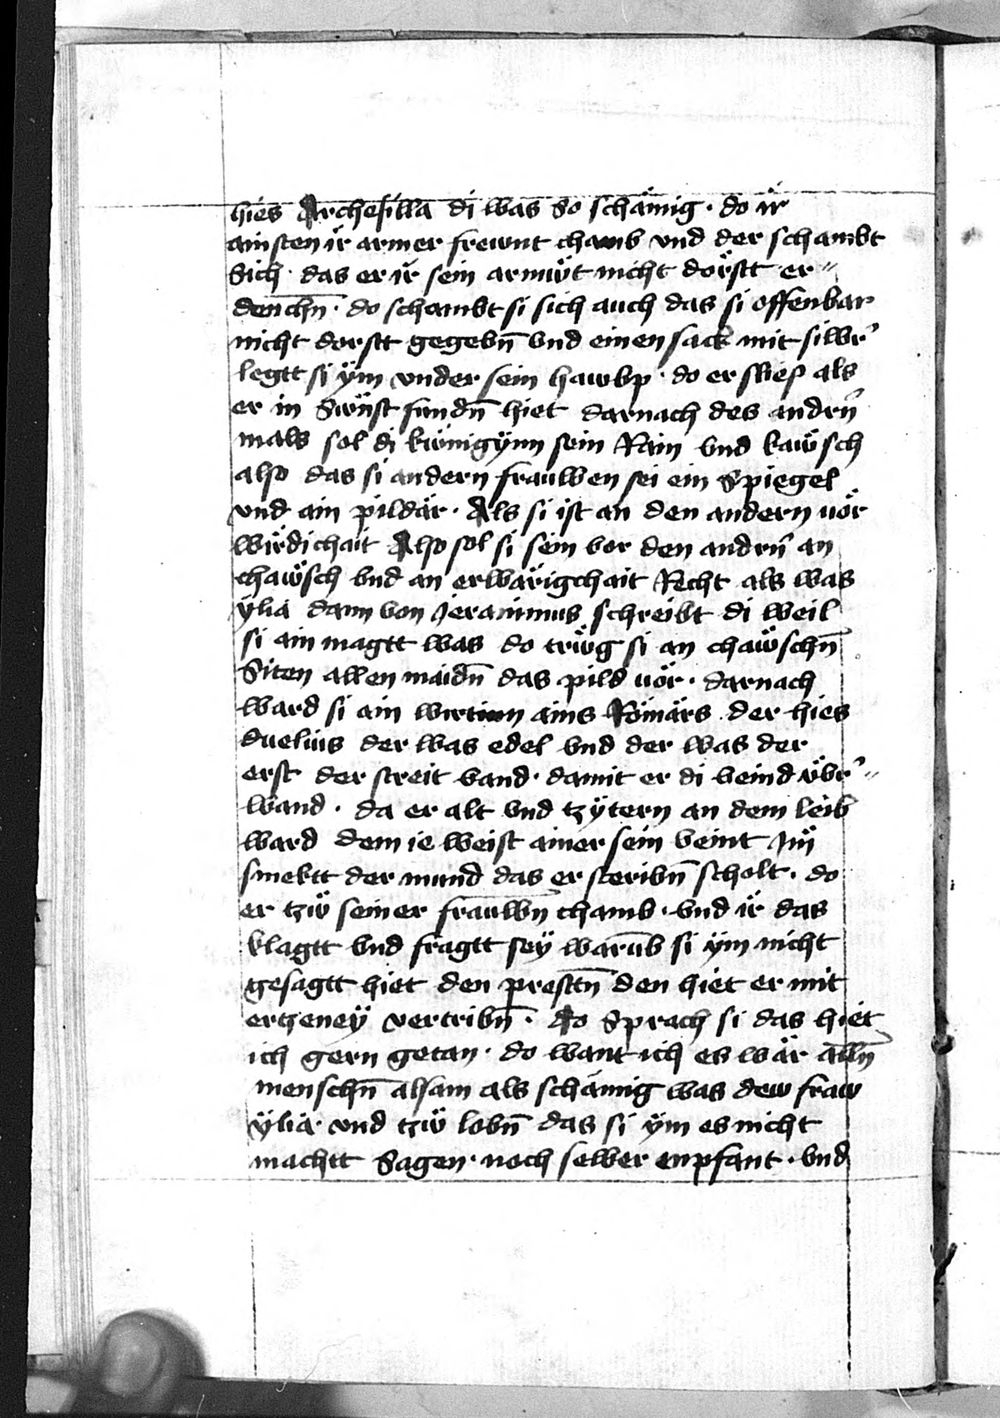 hies Archesilla di was so schämig · do ir
ainsten ir armer frewnt chamb vnd der schambt
sich · das er ir sein armüt nicht dörstt er-
denchn̄ · do schambt si sich auch das si offenbar
nicht dorstt gegebn̄ vnd einen sack mit silbr̄
legtt si ÿm vnder sein hawbp · do er slief als
er in sünst fundn̄ hiet darnach des andrn̄
mals sol di künigÿnn sein Rain vnd kaẅsch
also das si andern frauwen sei ein Spiegel
vnd ain pildär · Als si ist an den andern uör
wirdichait Also sol si sein vor den andrn̄ an
chaẅsch vnd an erwärigchait Recht als was
ÿlia dann von Jeranimus schreibt di weil
si ain magtt was do trüg si an chaẅschn̄
Siten allen maidn̄ das pild uör · darnach
ward si ain wirtinn ains Römärs der hies
duelius der was edel vnd der was der
erst der streit vand · damit er di veind übr̄-
wand · da er alt vnd tzÿtern an dem leib
ward dem ie weist ainer sein veint Im
smektt der mund das er steribn̄ scholt · do
er tzü seiner frauwn̄ chamb · vnd ir das
klagtt vnd fragtt seÿ warūb si ÿm nicht
gesagtt hiet den prestn̄ den hiet er mit
ertzeneÿ vertribn̄ · do Sprach si das hiet
ich gern getan · do want ich es wär alln̄
menschn̄ alsam als schämig was dew fraw
ÿlia · vnd tzü lobn̄ das si ÿm es nicht
machtt Sagen · noch selber enpfant · vnd